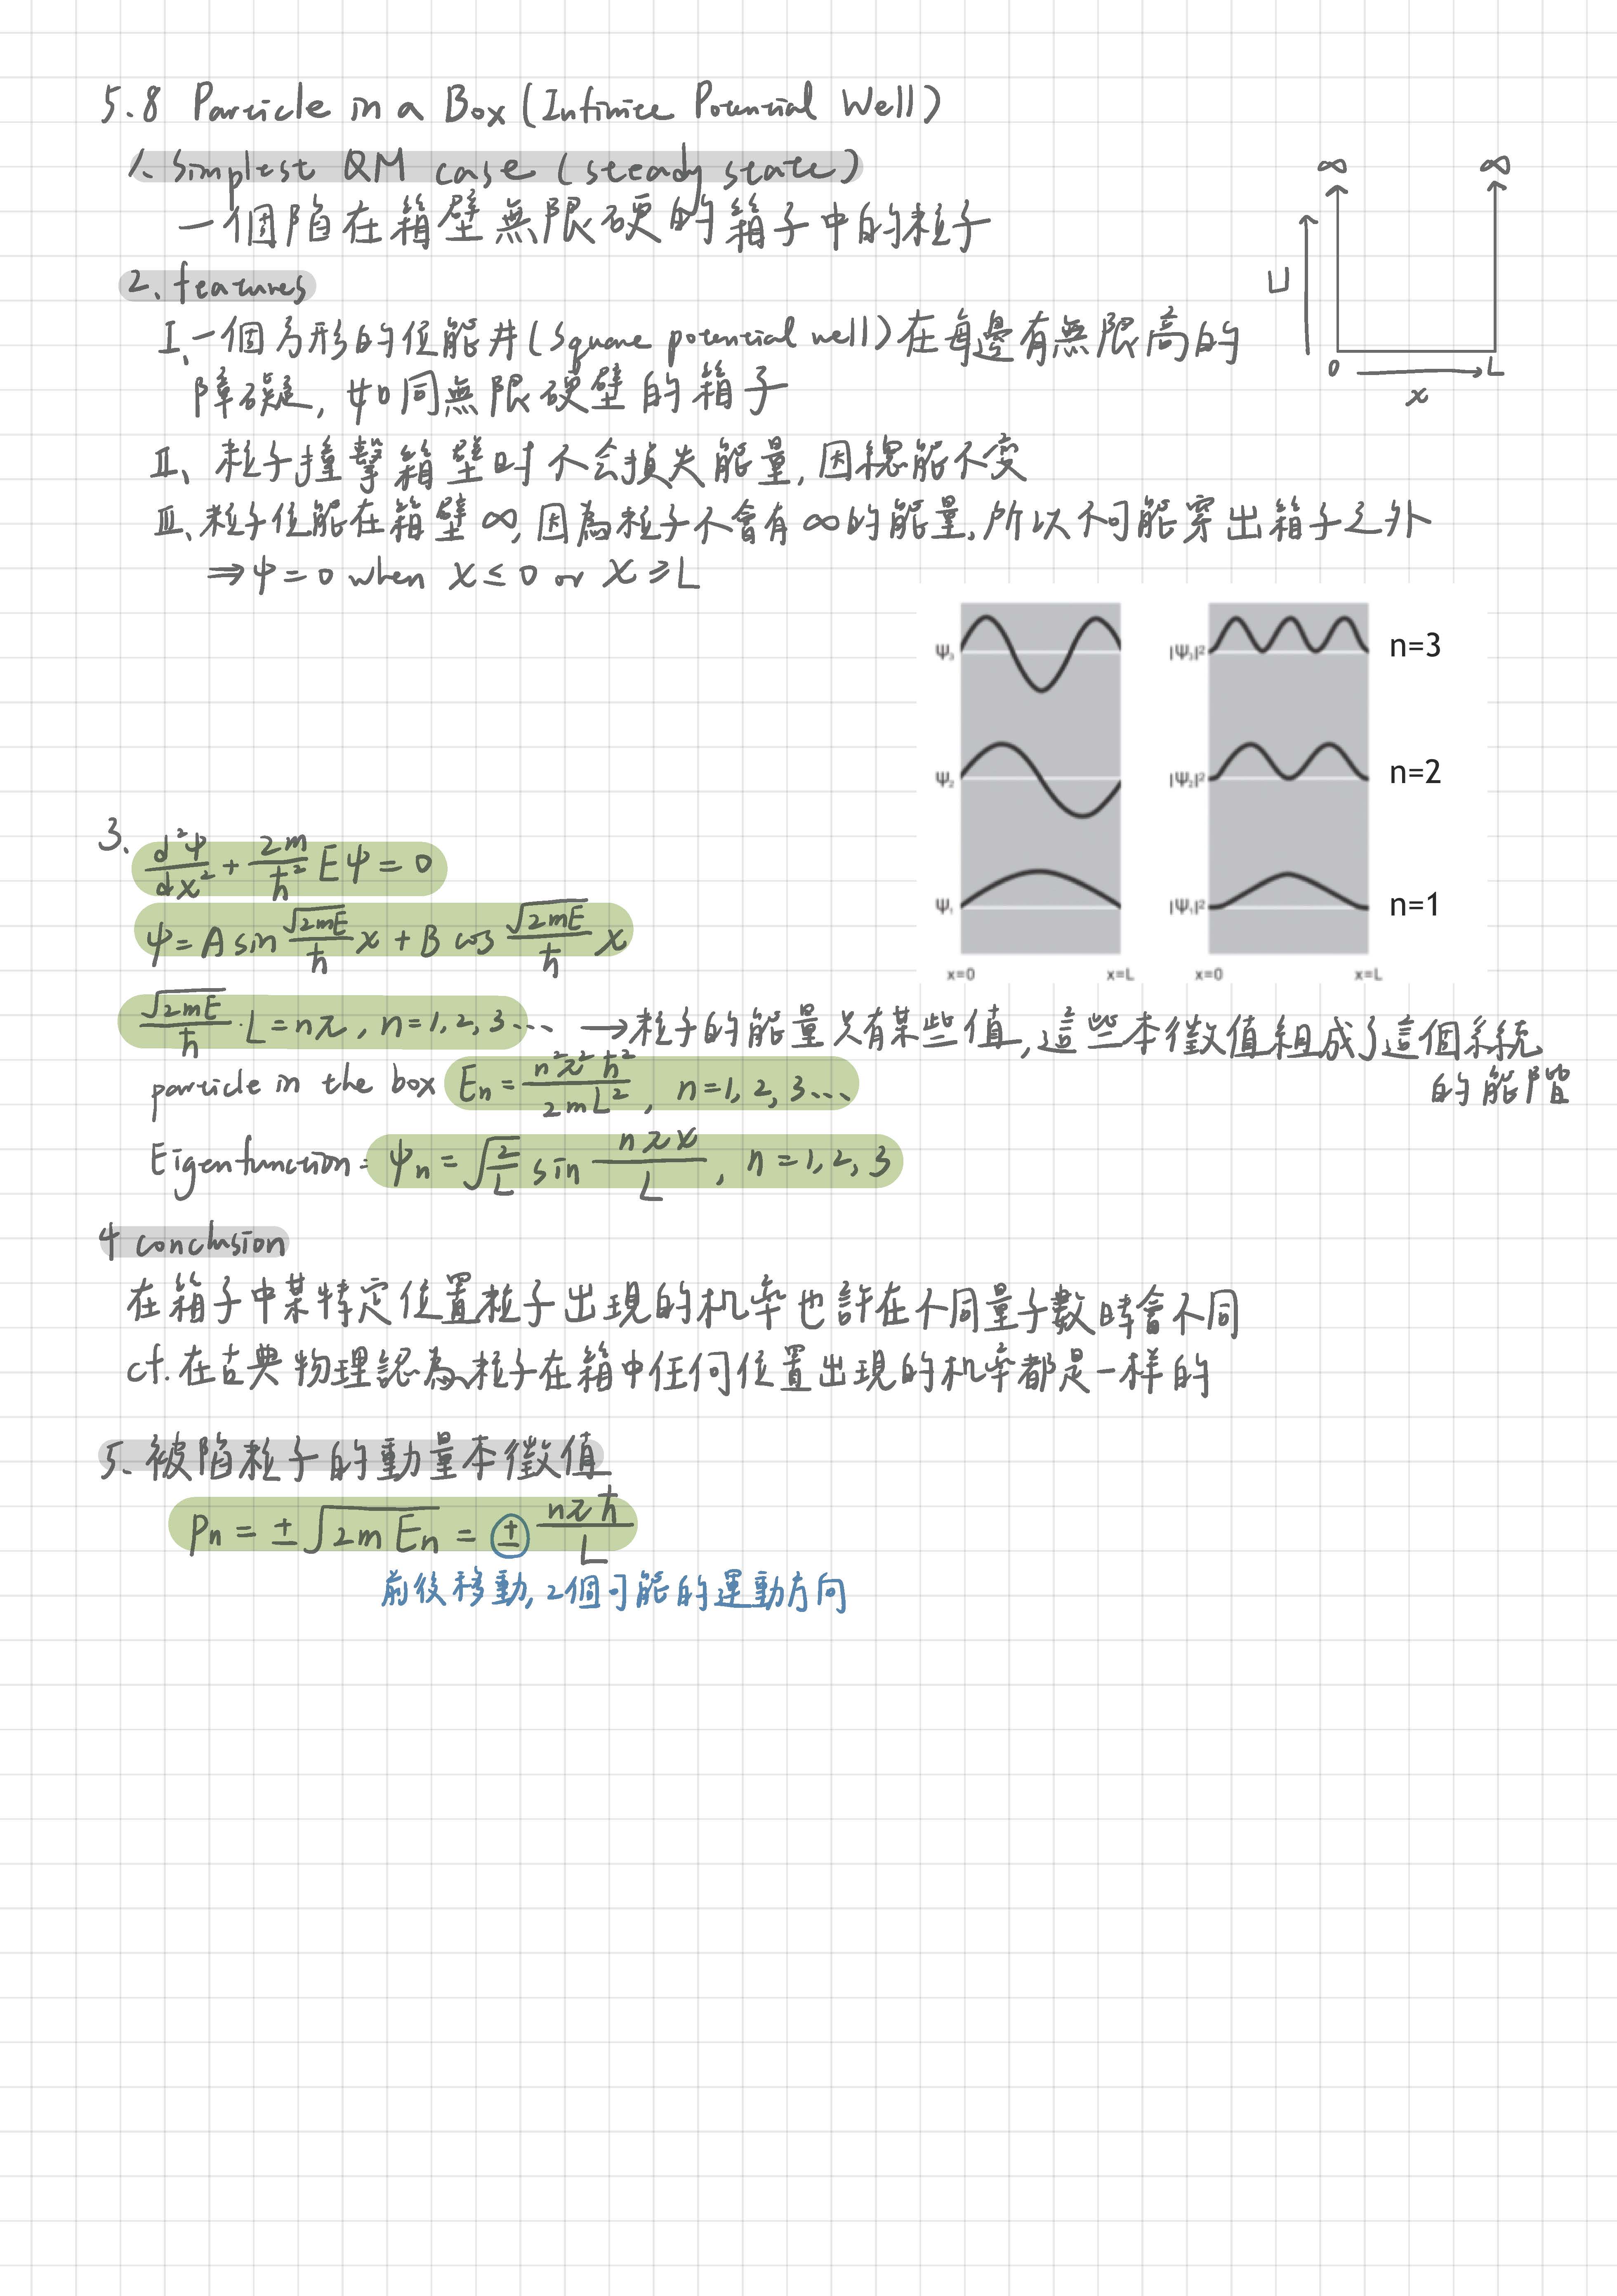 5.8 Particle in a Box (Infinite Potential Well)
1. Simplest QM case (steady state)
一個陷在箱壁無限硬的箱子中的粒子
∞ ∞
U
0 L
x
2. features
I、一個方形的位能井(Square potential well)在每邊有無限高的
障礙, 如同無限硬壁的箱子
II、粒子撞擊箱壁时不会損失能量, 因總能不变
III、粒子位能在箱壁∞, 因為粒子不會有∞的能量, 所以不可能穿出箱子之外
⇒ψ=0 when x≤0 or x≥L
Ψ₃ |Ψ₃|² n=3
Ψ₂ |Ψ₂|² n=2
Ψ₁ |Ψ₁|² n=1
x=0 x=L x=0 x=L
3. d²ψ/dx² + 2m/ħ² Eψ = 0
ψ = A sin √2mE/ħ x + B cos √2mE/ħ x
√2mE/ħ · L = nπ, n=1, 2, 3… →粒子的能量只有某些值, 這些本徵值組成了這個系統
的能階
particle in the box En = n²π²ħ²/2mL², n=1, 2, 3…
Eigenfunction: ψn = √2/L sin nπx/L, n=1, 2, 3
4 conclusion
在箱子中某特定位置粒子出現的机率也許在不同量子數時會不同
cf. 在古典物理認為粒子在箱中任何位置出現的机率都是一樣的
5. 被陷粒子的動量本徵值
Pn = ±√2mEn = ± nπħ/L
前後移動, 2個可能的運動方向